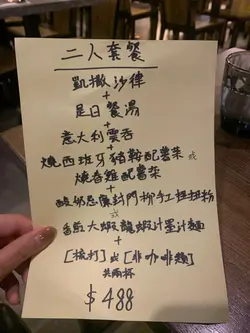 二人套餐
凱撒沙律
+
是日餐湯
+
意大利雲吞
+
燒西班牙豬鞍配薯菜 或
燒春雞配薯菜
+
封門柳手工扭扭粉
或
番茄大蝦龍蝦汁墨汁麵
+
[梳打] 或 [非咖啡類]
共兩杯
$488